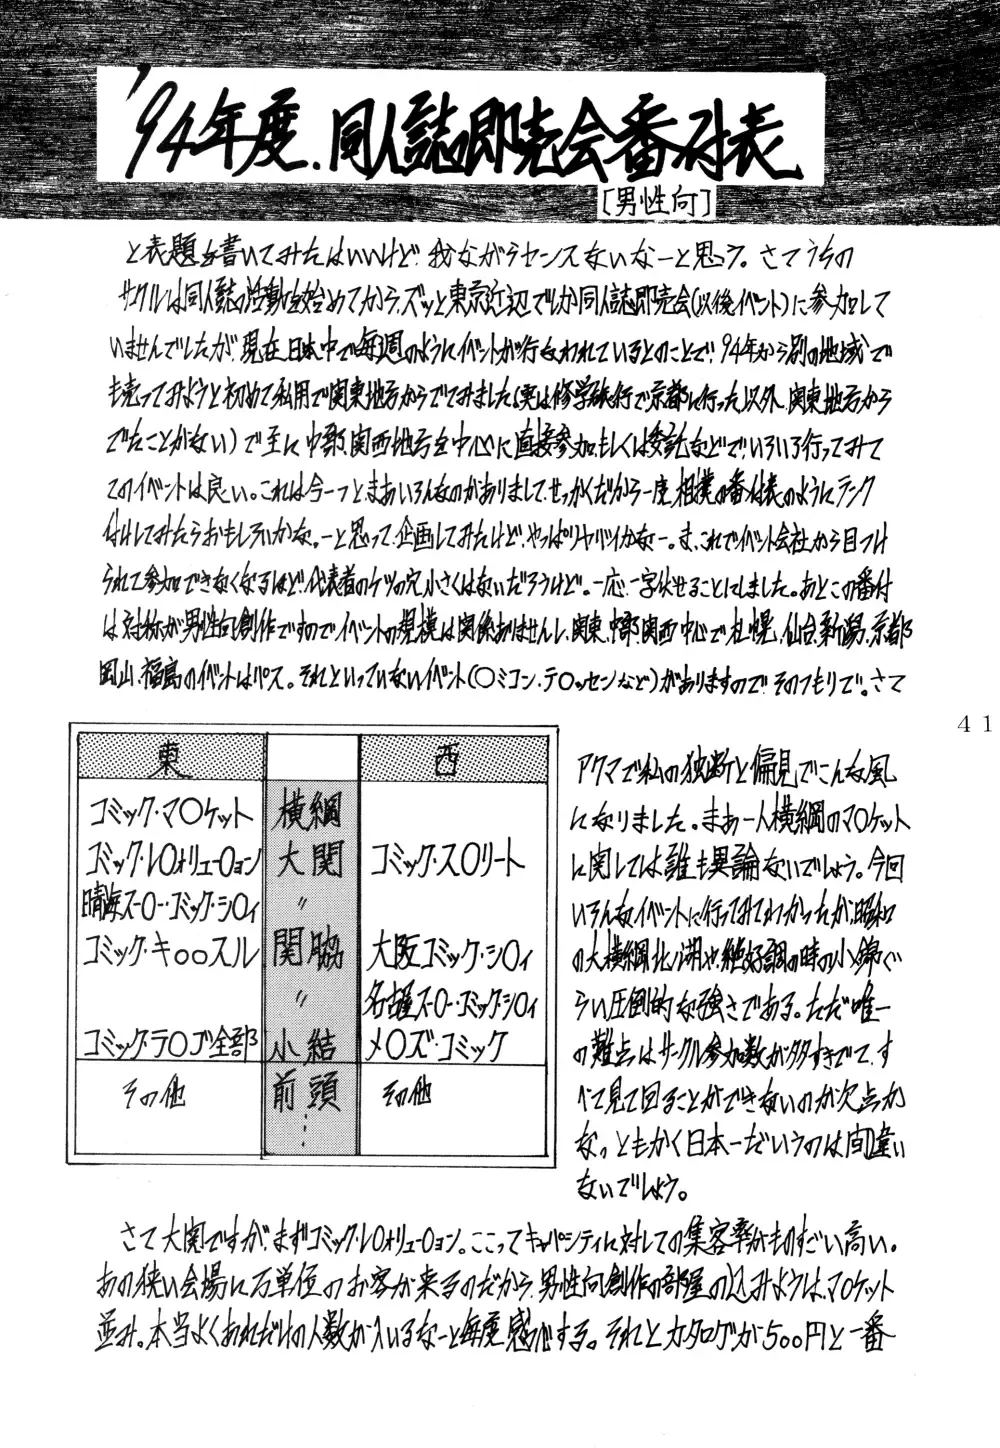 '94年度.同人誌即売会番付表
[男性向]
と表題を書いてみたはいいけど、我ながらセンスないなーと思う。さてうちの
サークルは同人誌の活動を始めてから、ズッと東京近辺でしか同人誌即売会(以後イベント)に参加して
いませんでしたが、現在、日本中で毎週のようにイベントが行なわれているとのことで、94年から別の地域で
も売ってみようと初めて私用で関東地方からでてみました(実は修学旅行で京都に行った以外、関東地方から
でたことがない)で主に中部、関西地方を中心に直接参加、もしくは委託などで、いろいろ行ってみて
てのイベントは良い。これは今一つとまあいろんなのがありまして、せっかくだから一度、相撲の番付表のようにランク
付けしてみたらおもしろいかな。ーと思って、企画してみたけど、やっぱりヤバイかなー。ま、これでイベント会社から目つけ
られて参加できなくなるほど、代表者のケツの穴小さくはないだろうけど。一応、一字伏せることにしました。あとこの番付
は対称が男性向創作ですのでイベントの規模は関係ありませんし、関東、中部、関西中心で札幌、仙台、新潟、京都
岡山、福島のイベントはパス。それといっていないイベント(〇ミコン、テ〇ッセンなど)がありますので、そのつもりで。さて
41
東 西
コミック・マ〇ケット 横綱
コミック・レ〇ォリュー〇ョン 大関 コミック・ス〇リート
晴海スー〇ー・コミック・シ〇ィ 〃
コミック・キ〇〇スル 関脇 大阪コミック・シ〇ィ
〃 名古屋スー〇ー・コミック・シ〇ィ
コミック・テ〇ゴ全部 小結 メ〇ズ・コミック
その他 前頭 その他
⋮
アクマで私の独断と偏見でこんな風
になりました。まあ一人横綱のマ〇ケット
に関しては誰も異論ないでしょう。今回
いろんなイベントに行ってみてわかったが、昭和
の大横綱北ノ湖や、絶好調の時の小錦ぐ
らい圧倒的な強さである。ただ唯一
の難点はサークル参加数が多すぎて、す
べて見て回ることができないのが欠点か
な。ともかく日本一だいうのは間違い
ないでしょう。
さて大関ですが、まずコミック・レ〇ォリュー〇ョン。ここってキャパシティに対しての集客率がものすごい高い。
あの狭い会場に万単位のお客が来るのだから、男性向創作の部屋の込みようは、マ〇ケット
並み。本当よくあれだけの人数が入いるなーと毎度感心する。それとカタログが500円と一番